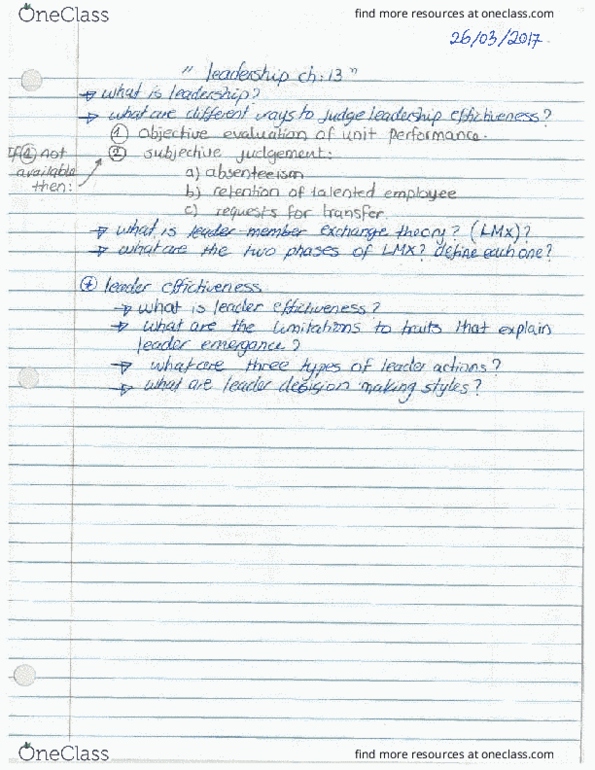 OneClass
find more resources at oneclass.com
26/03/2017.
" leadership ch:13 "
→ what is leadership?
→ what are different ways to judge leadership effictiveness?
① objective evaluation of unit performance.
If ① not available then:
② subjective judgement:
a) absenteeism
b) retention of talented employee
c) requests for transfer.
→ what is leader member exchange theory? (LMX)?
→ what are the two phases of LMX? define each one?
⊕ leader effictiveness
→ what is leader effictiveness?
→ what are the limitations to traits that explain
leader emergance?
→ what are three types of leader actions?
→ what are leader decision making styles?
OneClass
find more resources at oneclass.com